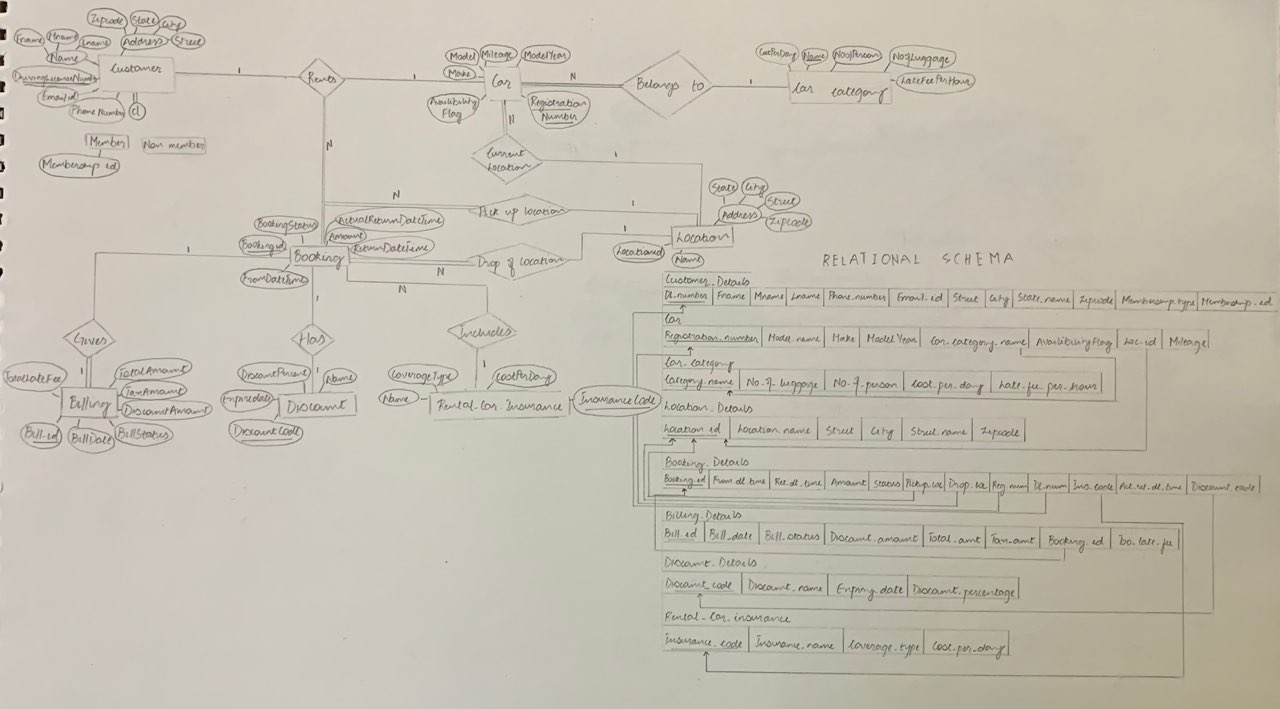 Zipcode State City
Fname Mname Lname Address Street
Name
Customer
DrivingLicenseNumber
Emailid
PhoneNumber d
Member Non member
Membership id
Rents
1 1 N
Model Mileage ModelYear
Make Car
Availibility Flag
Registration Number
N Belongs to 1
CostPerDay Name NoofPerson NoofLuggage
LateFeePerHour
Car category
N
Current Location
1
N Pick up location 1
State City
Street
Address
Zipcode
Location
Locationid
Name
BookingStatus ActualReturnDateTime
Bookingid Amount
ReturnDateTime
Booking
FromDateTime
N Drop of location 1
1 1 N
Gives Has Includes
1 1
TotalLateFee TotalAmount
TaxAmount
Billing DiscountAmount
Bill.id BillDate BillStatus
DiscountPercent Name
Expiredate Discount
DiscountCode
CoverageType CostPerDay
Name Rental.Car.Insurance InsuranceCode
RELATIONAL SCHEMA
Customer.Details
Dl.number Fname Mname Lname Phone.number Email.id Street City State.name Zipcode Membership.type Membership.id
Car
Registration.number Model.name Make Model Year Car.category.name AvailibilityFlag Loc.id Mileage
Car.category
Category.name No.of.luggage No.of.person Cost.per.day Late.fee.per.hour
Location.Details
Location.id Location.name Street City Street.name Zipcode
Booking.Details
Booking.id From.dt.time Ret.dt.time Amount Status Pickup.loc Drop.loc Reg.num Dl.num Ins.code Act.ret.dt.time Discount.code
Billing.Details
Bill.id Bill.date Bill.status Discount.amount Total.amt Tax.amt Booking.id late.fee
Discount.Details
Discount.code Discount.name Expiry.date Discount.percentage
Rental.Car.insurance
Insurance.code Insurance.name Coverage.type Cost.per.day